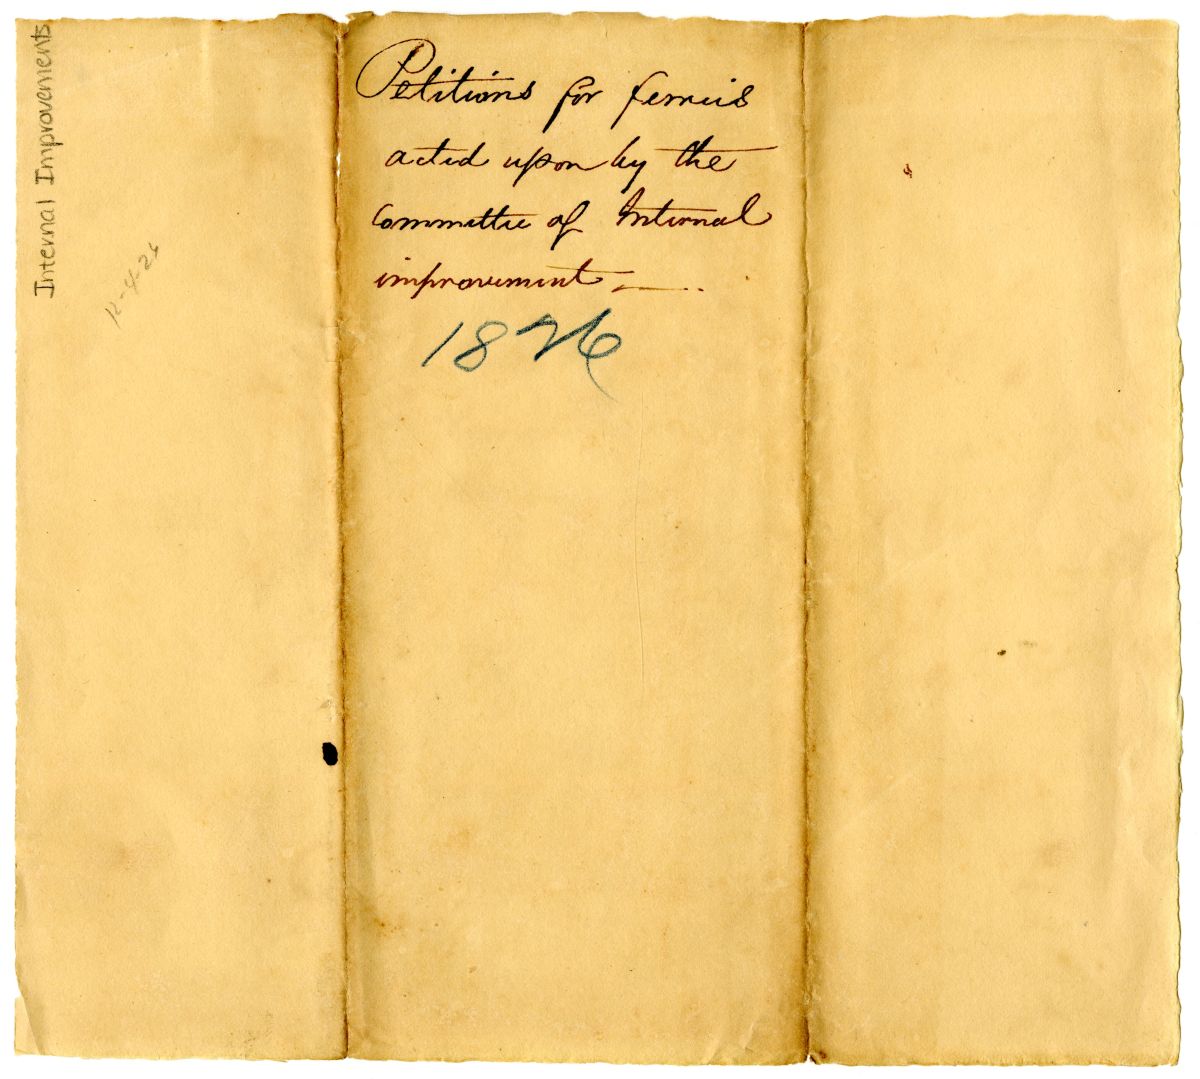 Internal Improvements
12-4-26
Petitions for ferries
acted upon by the
committee of Internal
improvement
1826